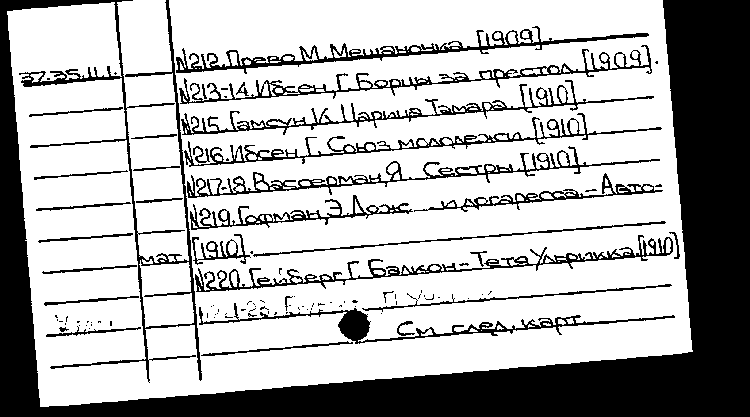 37.35.11.1.
N212. Прево, М. Мещаночка. [1909].
N213-14. Ибсен, Г. Борцы за престол. [1909].
N215. Гамсун, К. Царица Тамара. [1910].
N216. Ибсен, Г. Союз молодежи. [1910].
N217-18. Вассерман, Я. Сестры. [1910].
N219. Гофман, Э. Дож и догаресса. - Авто-
мат. [1910].
N220. Гейберг, Г. Балкон. - Тетя Ульрикка. [1910]
См. след. карт.